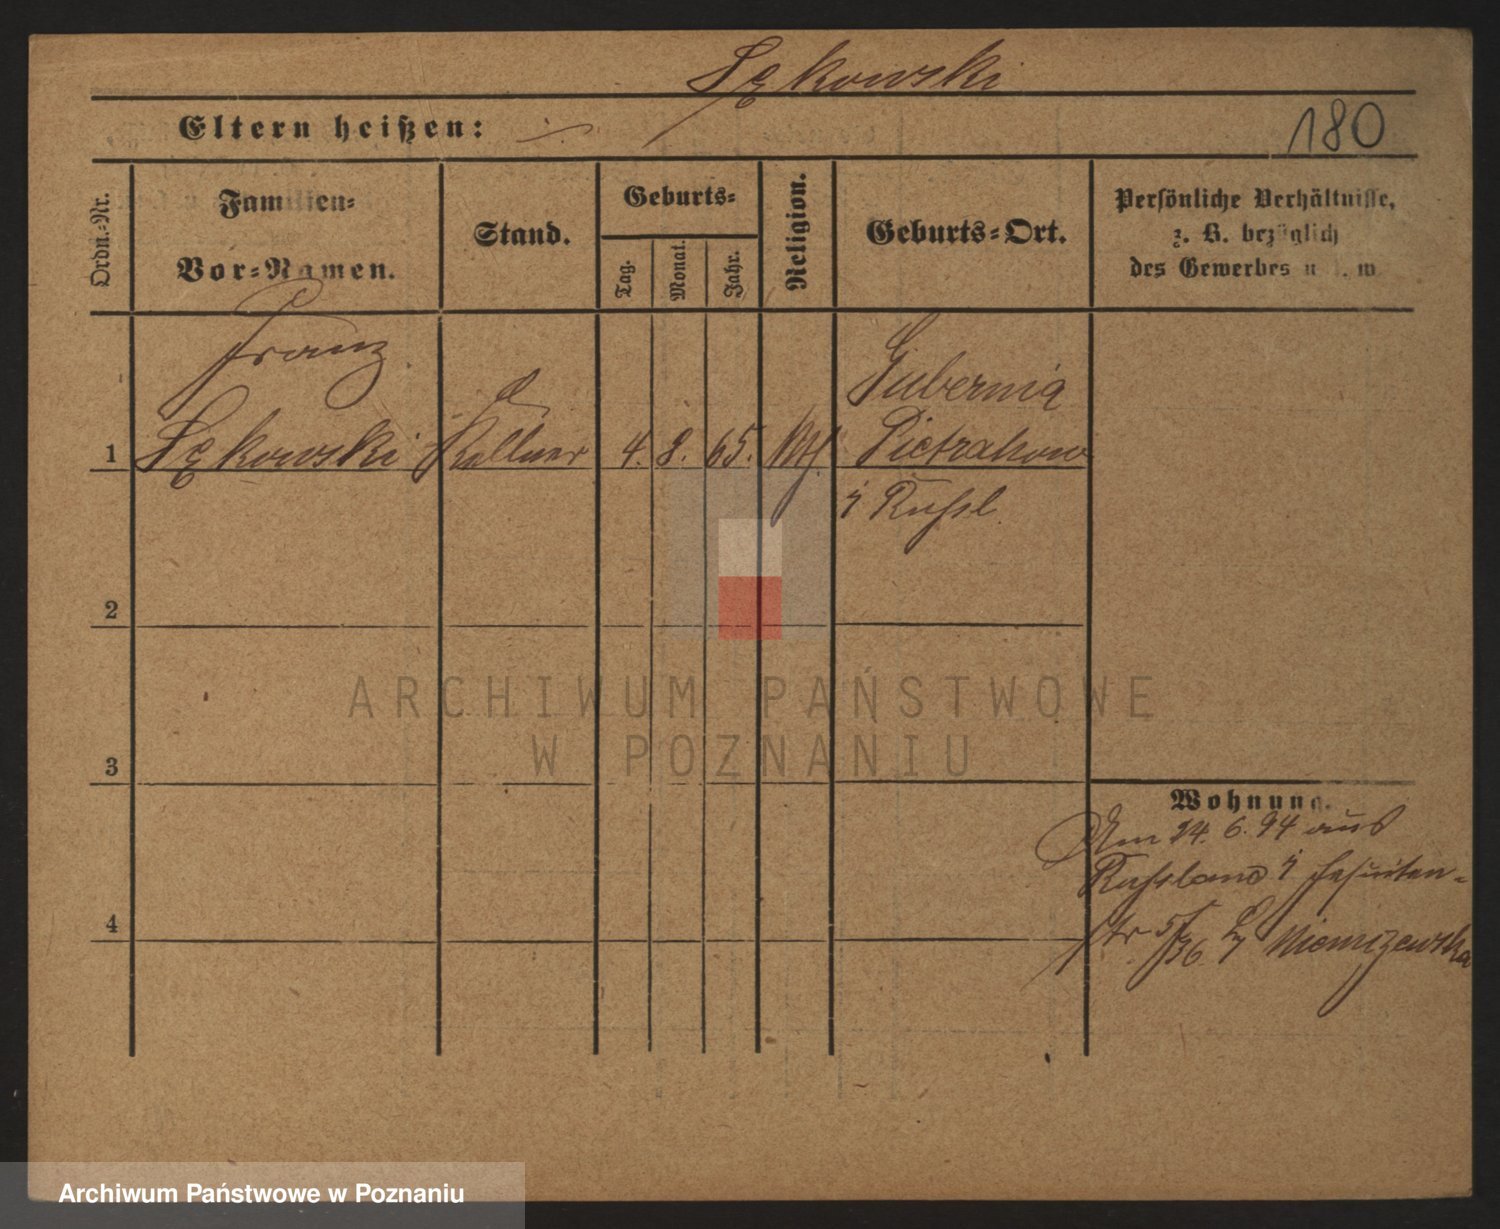 Sękowski
Eltern heißen:
180
Ordn.-Nr.
Familien-
Vor-Namen.
Stand.
Geburts-
Tag.
Monat.
Jahr.
Religion.
Geburts-Ort.
Persönliche Verhältnisse,
z. B. bezüglich
des Gewerbes u. s. w.
Franz
Gubernia
1 Sękowski Kellner 4. 8. 65. kth Pietrakow
i Russl.
2
3
4
Wohnung.
Am 24. 6. 94 aus
Russland i Jesuiten-
str. 5/36 Niemizewska
ARCHIWUM PAŃSTWOWE
W POZNANIU
Archiwum Państwowe w Poznaniu